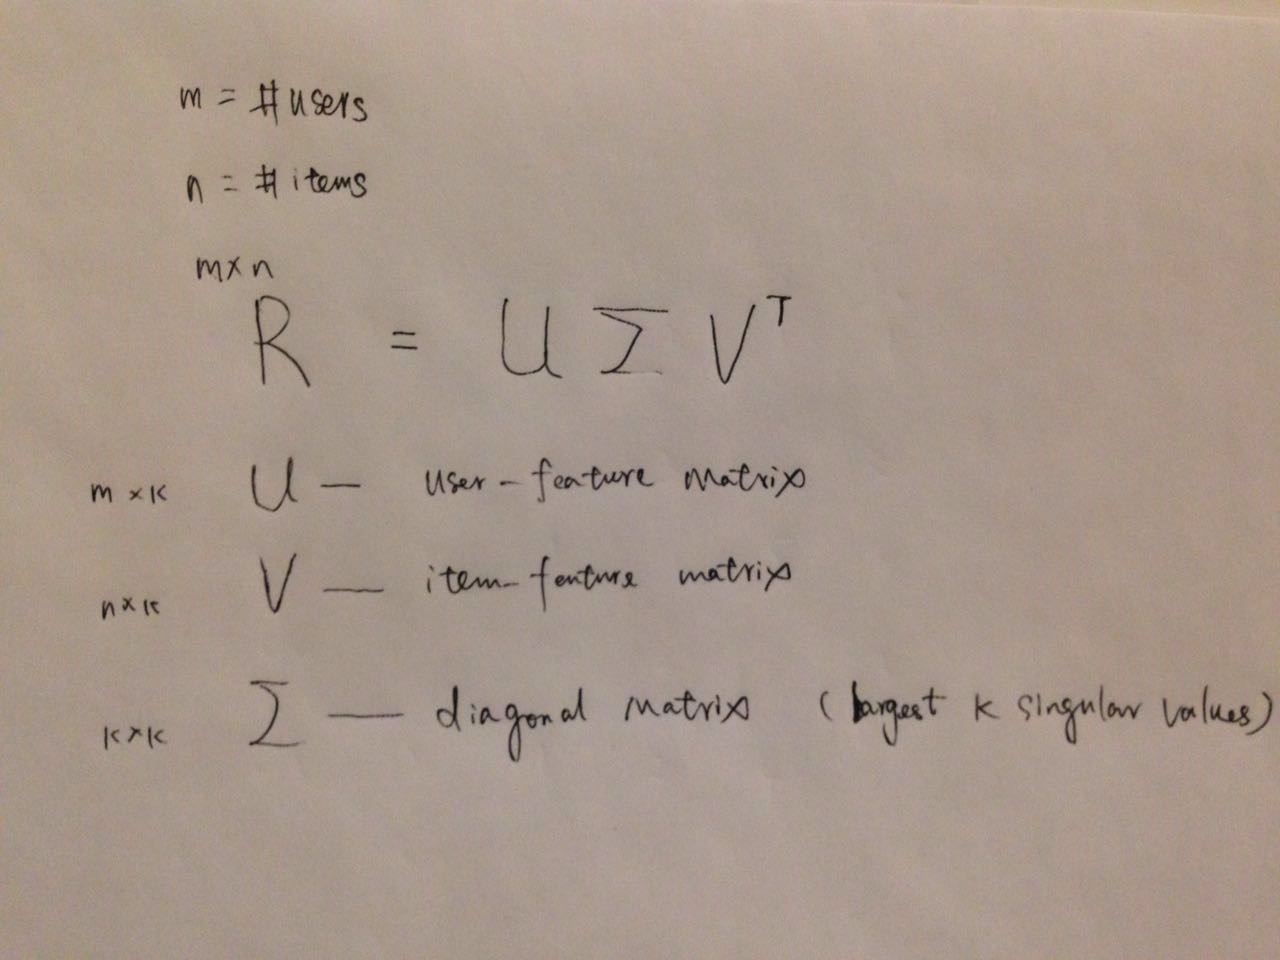 m = #users
n = #items
m×n
R = U Σ Vᵀ
m×k U — user-feature matrix
n×k V — item-feature matrix
k×k Σ — diagonal matrix (largest k singular values)